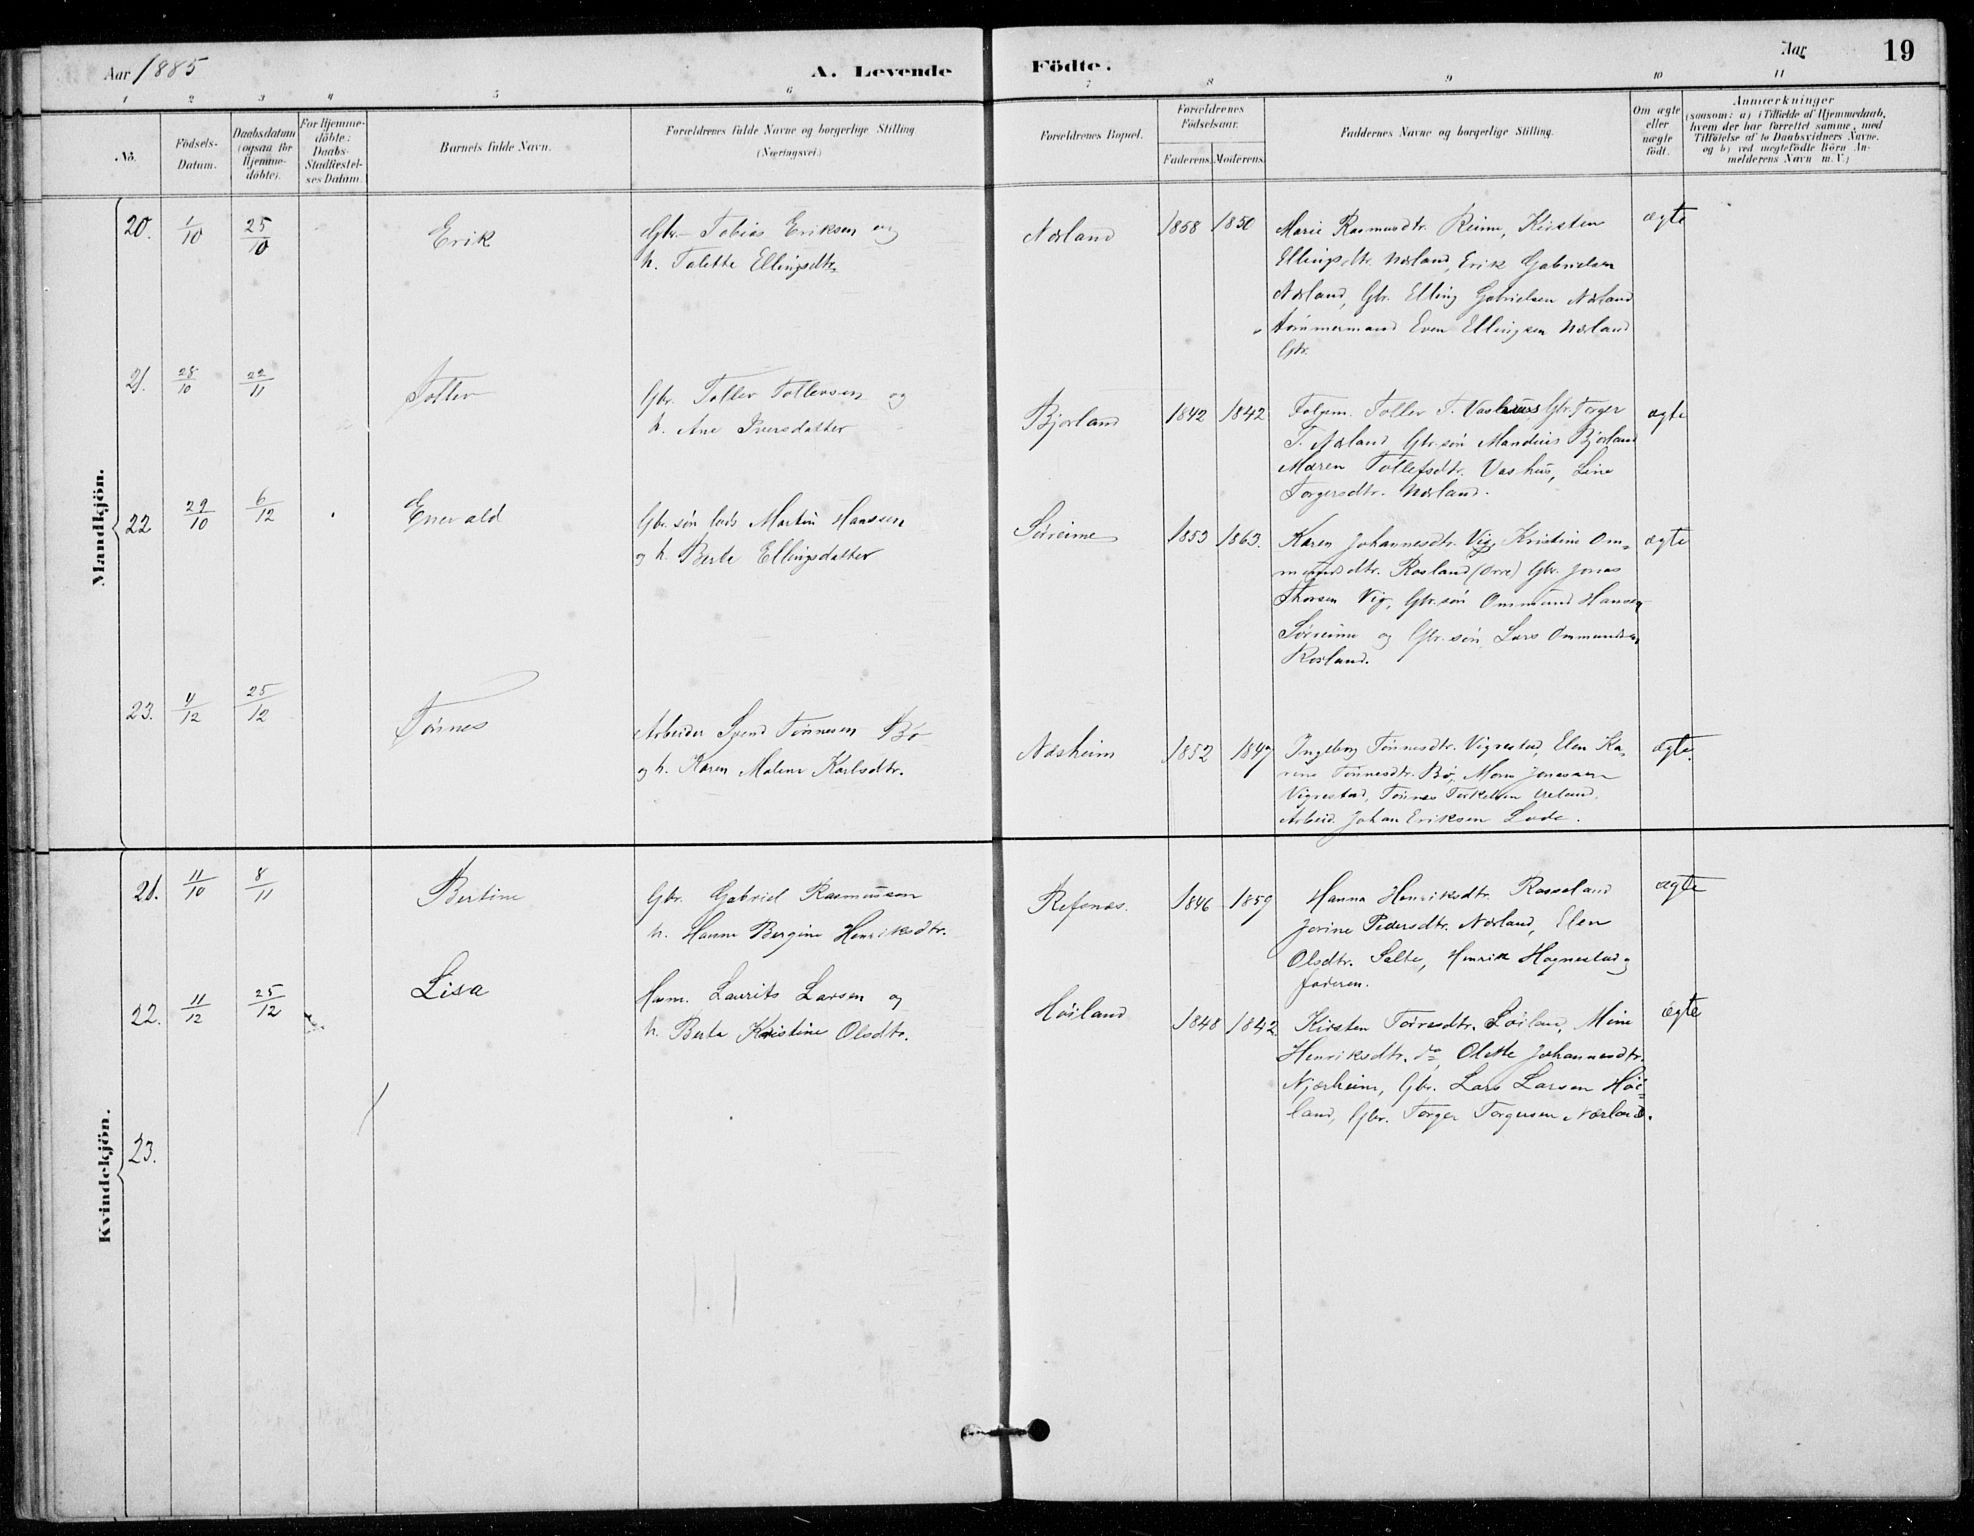 Aar 1885
A. Levende Födte.
Aar
19
1 2 3 4 5 6 7 8 9 10 11
No.
Födsels-Datum.
Daabsdatum (ogsaa for Hjemmedöbte).
For Hjemmedöbte: Daabs-Stadfæstelses Datum.
Barnets fulde Navn.
Forældrenes fulde Navne og borgerlige Stilling (Næringsvei.)
Forældrenes Bopæl.
Forældrenes Födselsaar.
Faderens. Moderens.
Faddernes Navne og borgerlige Stilling.
Om ægte eller uægte födt.
Anmærkninger
(saasom: a) i Tilfælde af Hjemmedaab,
hvem der har forrettet samme, med
Tilföielse af to Daabsvidners Navne.
og b) ved uægtefödte Börn An-
melderens Navn m.V.)
Mandkjön.
20. 1/10 25/10 Erik
Gbr. Tobias Eriksen og
h. Talette Ellingsdtr.
Nærland 1858 1850
Marie Rasmusdtr. Reime, Kirsten
Ellingsdtr. Nærland, Erik Gabrielsen
Nærland, Gbr. Elling Gabrielsen Nærland
Tømmermand Even Ellingsen Nærland
Gbr.
ægte
21. 28/10 22/11 Toller
Gbr. Toller Tollersen og
h. Ane Iversdatter
Bjorland 1842 1842
Folgem. Toller T. Vashuus Gbr. Torger
T. Nærland Gbr. søn Mandius Bjorland
Maren Tollefsdtr. Vashus, Line
Torgersdtr. Nærland.
ægte
22 29/10 6/12 Enevald
Gbr. søn Martin Hanssen
og h. Berte Ellingsdatter
Søreime 1853 1863.
Karen Johannesdtr. Vig, Kristine Om-
mundsdtr. Rosland (Orre) Gbr. Jonas
Thorsen Vig, Gbr. søn Ommund Hansen
Sørreime og Gbr. søn Lars Ommundsen
Rosland.
ægte
23. 4/12 25/12 Tønnes
Arbeider Svend Tønnesen Bø
og h. Karen Malene Karlsdtr.
Næsheim 1852 1847
Ingeborg Tønnesdtr. Vigrestad, Elen Ka-
rine Tønnesdtr. Bø, Mons Jonassen
Vigrestad, Tønnes Torkelsen Ueland.
Arbeid. Johan Eriksen Lode.
ægte.
Kvindekjön.
21. 11/10 8/11 Bertine
Gbr. Gabriel Rasmussen
h. Hanne Bergine Henriksdtr.
Refsnæs. 1846 1859
Hanna Henriksdtr. Rosseland
Jorine Pedersdtr. Nærland, Elen
Olsdtr. Salte, Henrik Hognestad og
faderen.
ægte
22. 11/12 25/12 Lisa
Husm. Laurits Larsen og
h. Berta Kristine Olsdtr.
Høiland 1848 1842
Kirsten Torresdtr. Loiland, Mine
Henriksdtr. do, Olette Johannesdtr.
Njærheim, Gbr. Lars Larsen Høi-
land, Gbr. Torger Torgersen Nærland.
ægte
23.